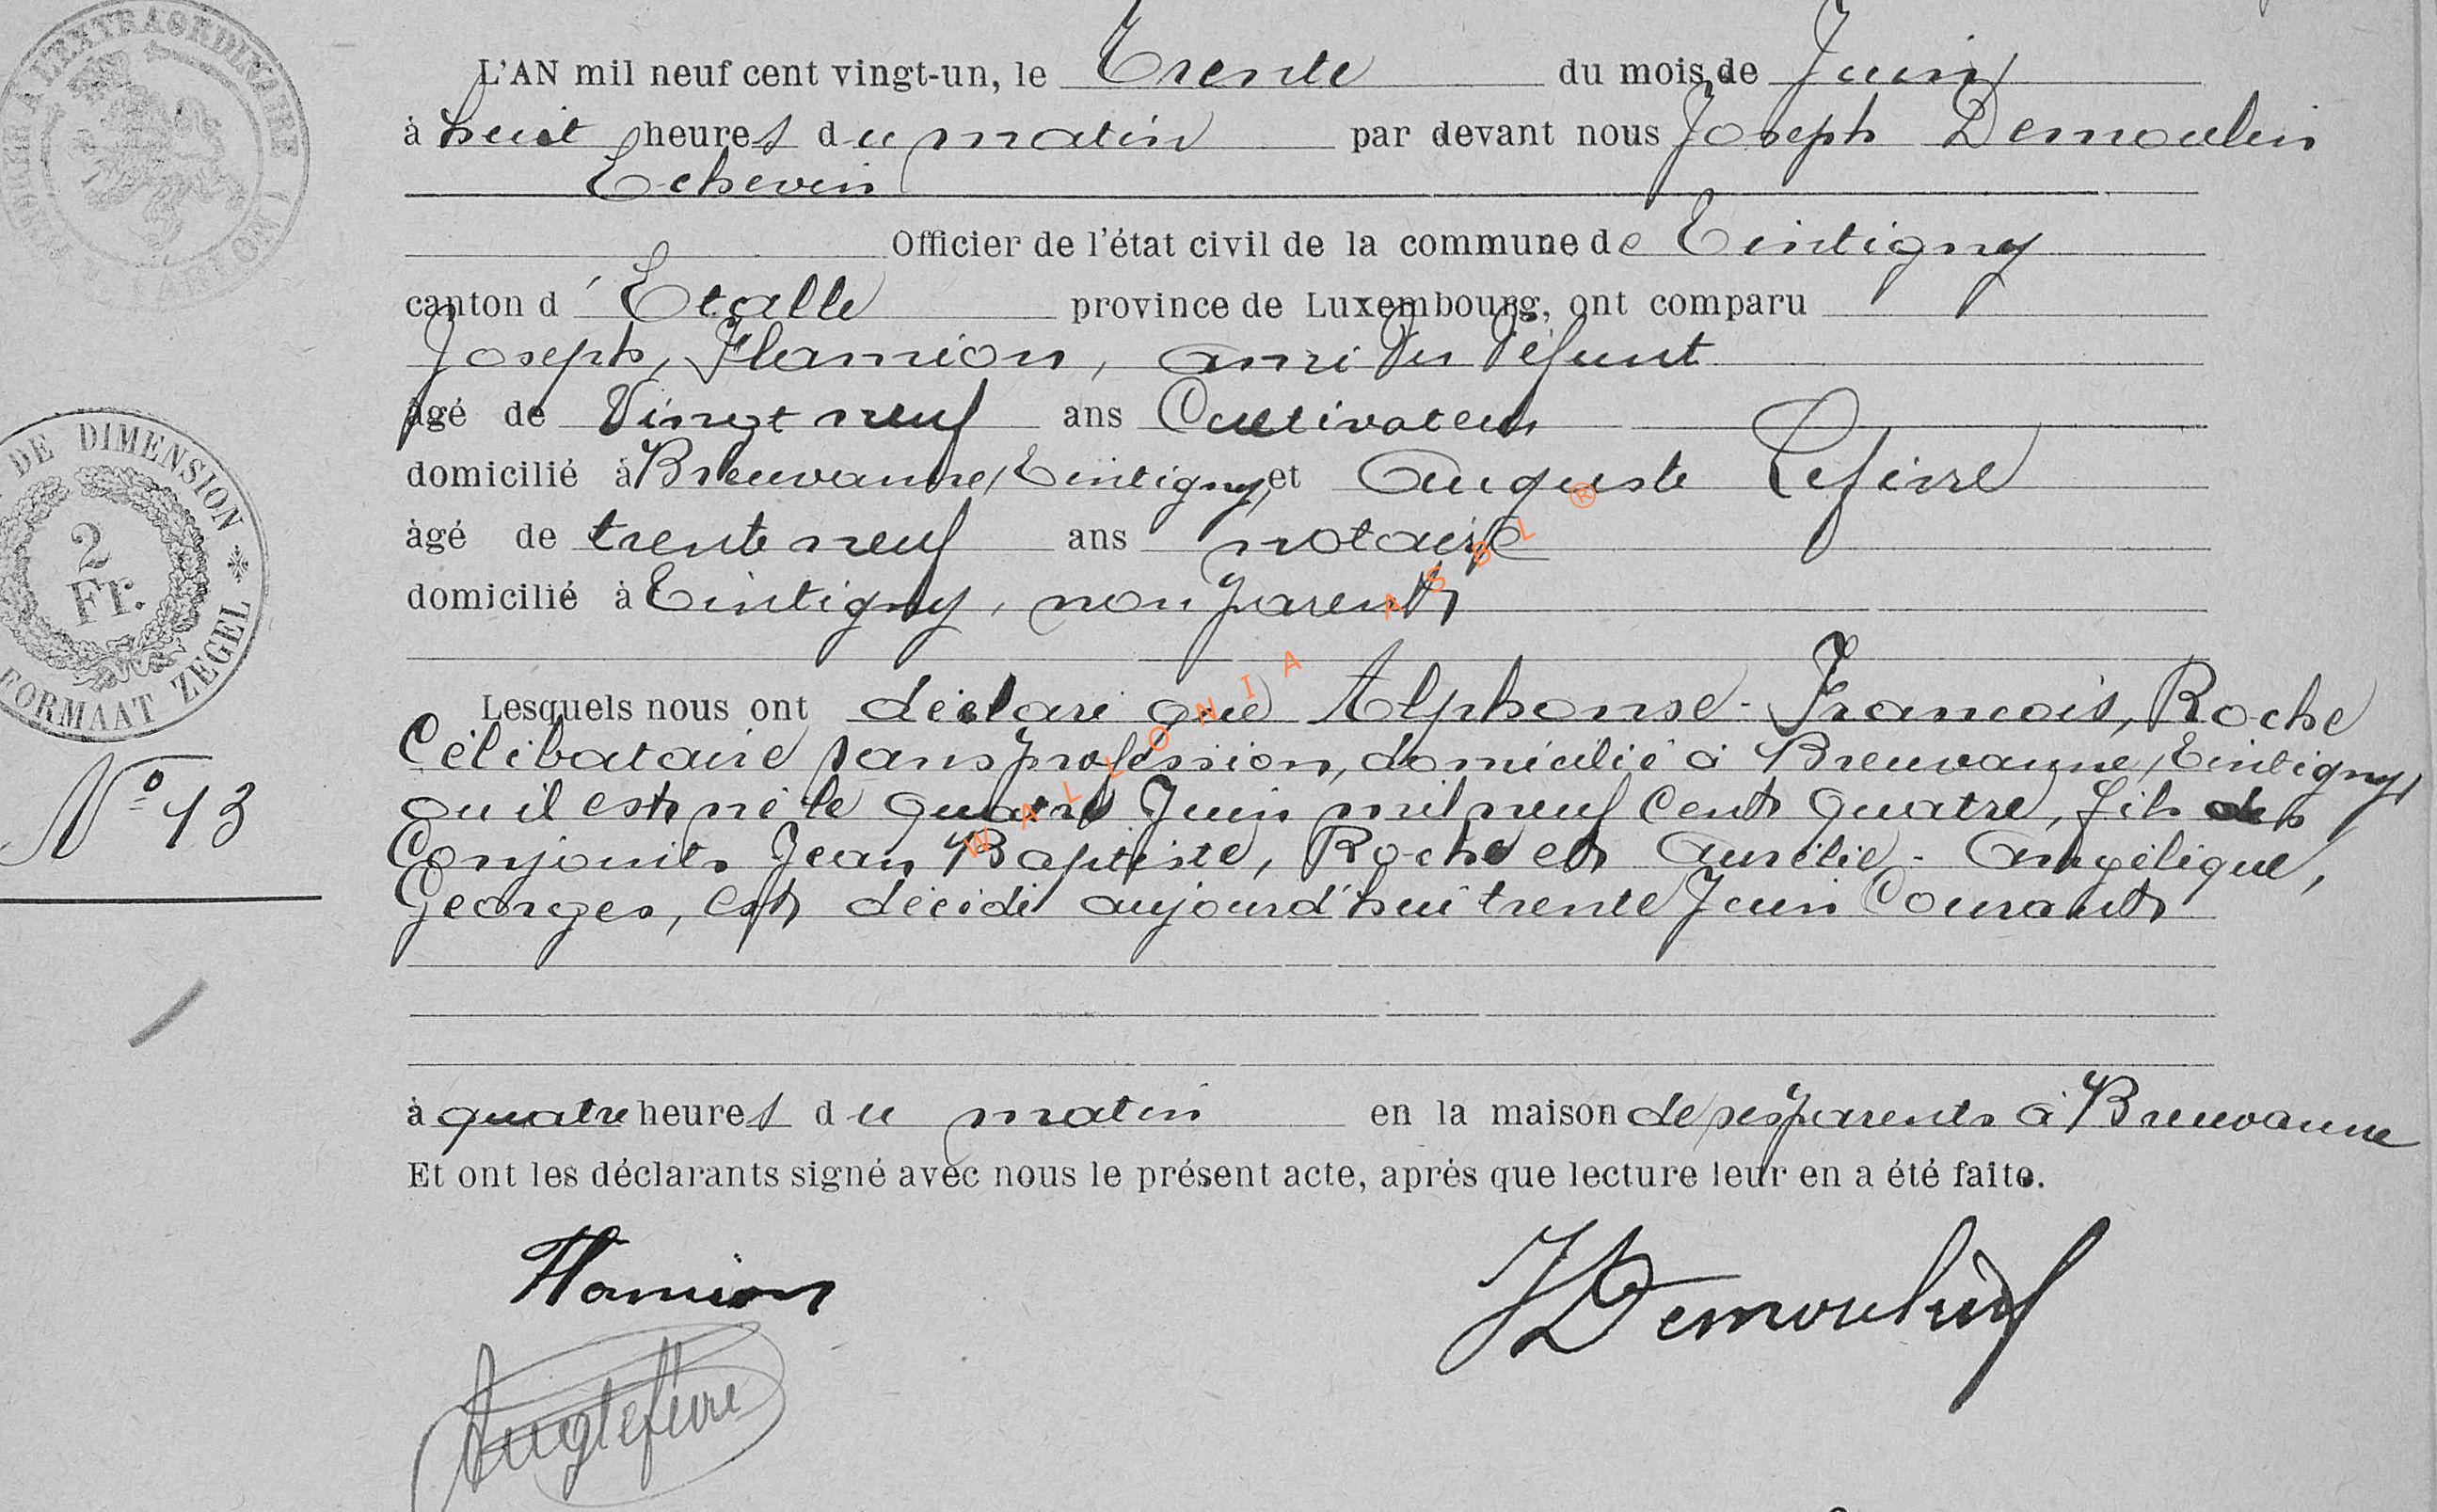 TIMBRE A L'EXTRAORDINAIRE (ARLON)
L'AN mil neuf cent vingt-un, le Trente du mois de Juin
à huit heures du matin par devant nous Joseph Demoulin
Echevin
Officier de l'état civil de la commune de Tintigny
canton d'Etalle province de Luxembourg, ont comparu
Joseph, Hamion, ami du défunt
âgé de Vingt neuf ans Cultivateur
domicilié à Breuvanne, Tintigny, et Auguste Lefèvre
âgé de trente neuf ans notaire
domicilié à Tintigny, non parents
DE DIMENSION
2
Fr.
FORMAAT ZEGEL
Lesquels nous ont déclaré que Alphonse-François, Roche
Célibataire sans profession, domicilié à Breuvanne, Tintigny,
ou il est né le quatre Juin mil neuf cent quatre, fils des
Conjoints Jean Baptiste, Roche et Aurélie-Angélique,
Georges, est décédé aujourd'hui trente Juin Courant
N° 13
à quatre heures du matin en la maison de ses parents à Breuvanne
Et ont les déclarants signé avec nous le présent acte, après que lecture leur en a été faite.
Hamion
J Demoulin
Aug Lefèvre
WALLONIA ASBL ®